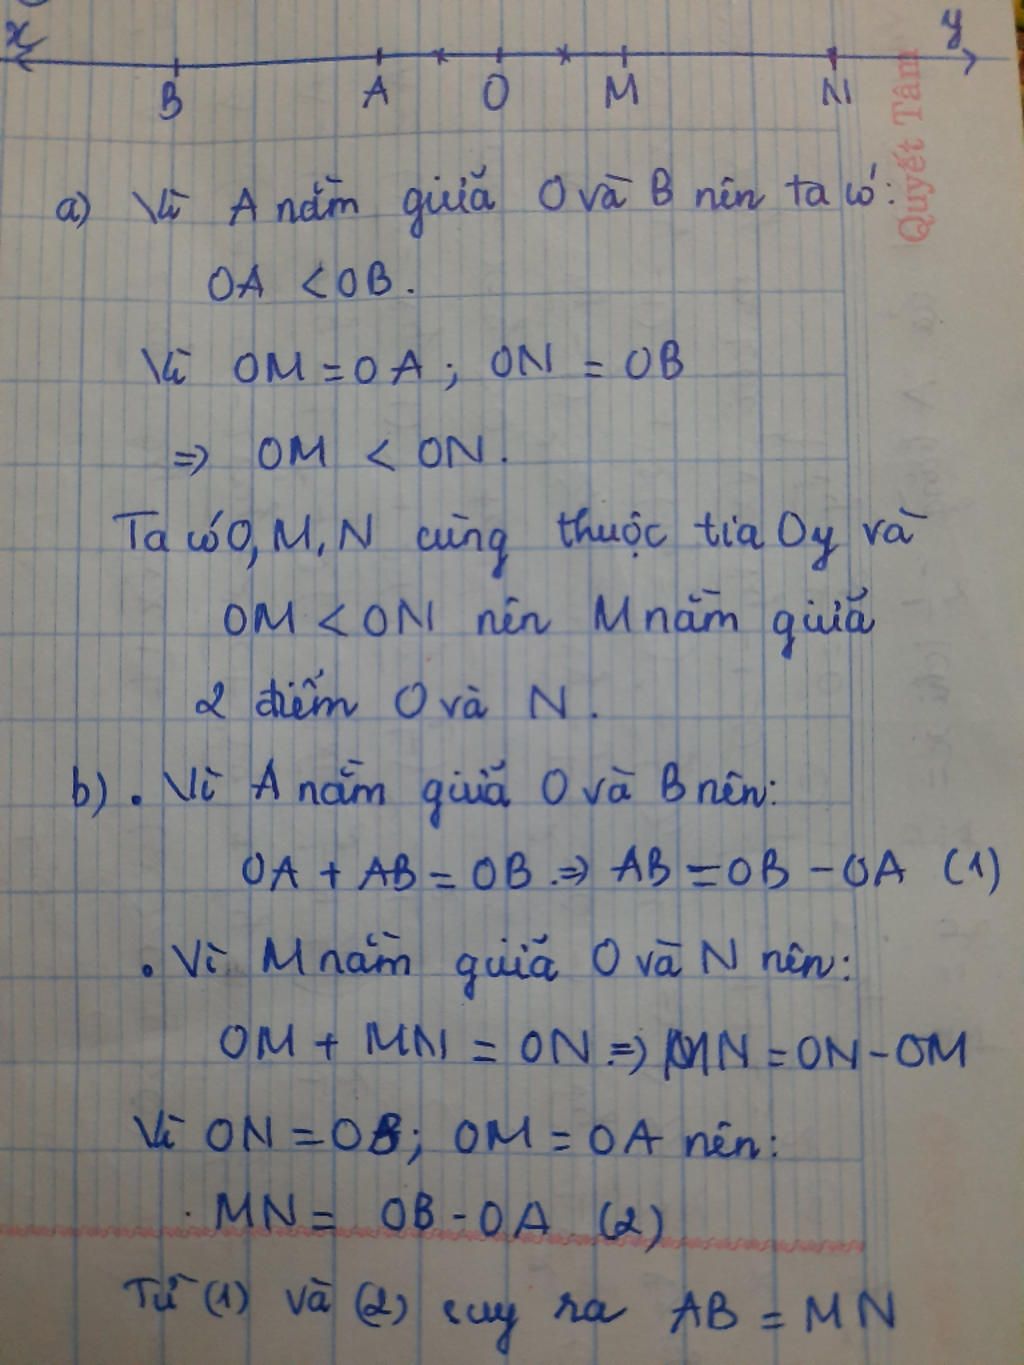 x y
B A O M N
Quyết Tâm
a) Vì A nằm giữa O và B nên ta có:
OA < OB.
Vì OM = OA ; ON = OB
=> OM < ON.
Ta có O, M, N cùng thuộc tia Oy và
OM < ON nên M nằm giữa
2 điểm O và N.
b) . Vì A nằm giữa O và B nên:
OA + AB = OB. => AB = OB - OA (1)
. Vì M nằm giữa O và N nên:
OM + MN = ON => MN = ON - OM
Vì ON = OB; OM = OA nên:
MN = OB - OA (2)
Từ (1) và (2) suy ra AB = MN